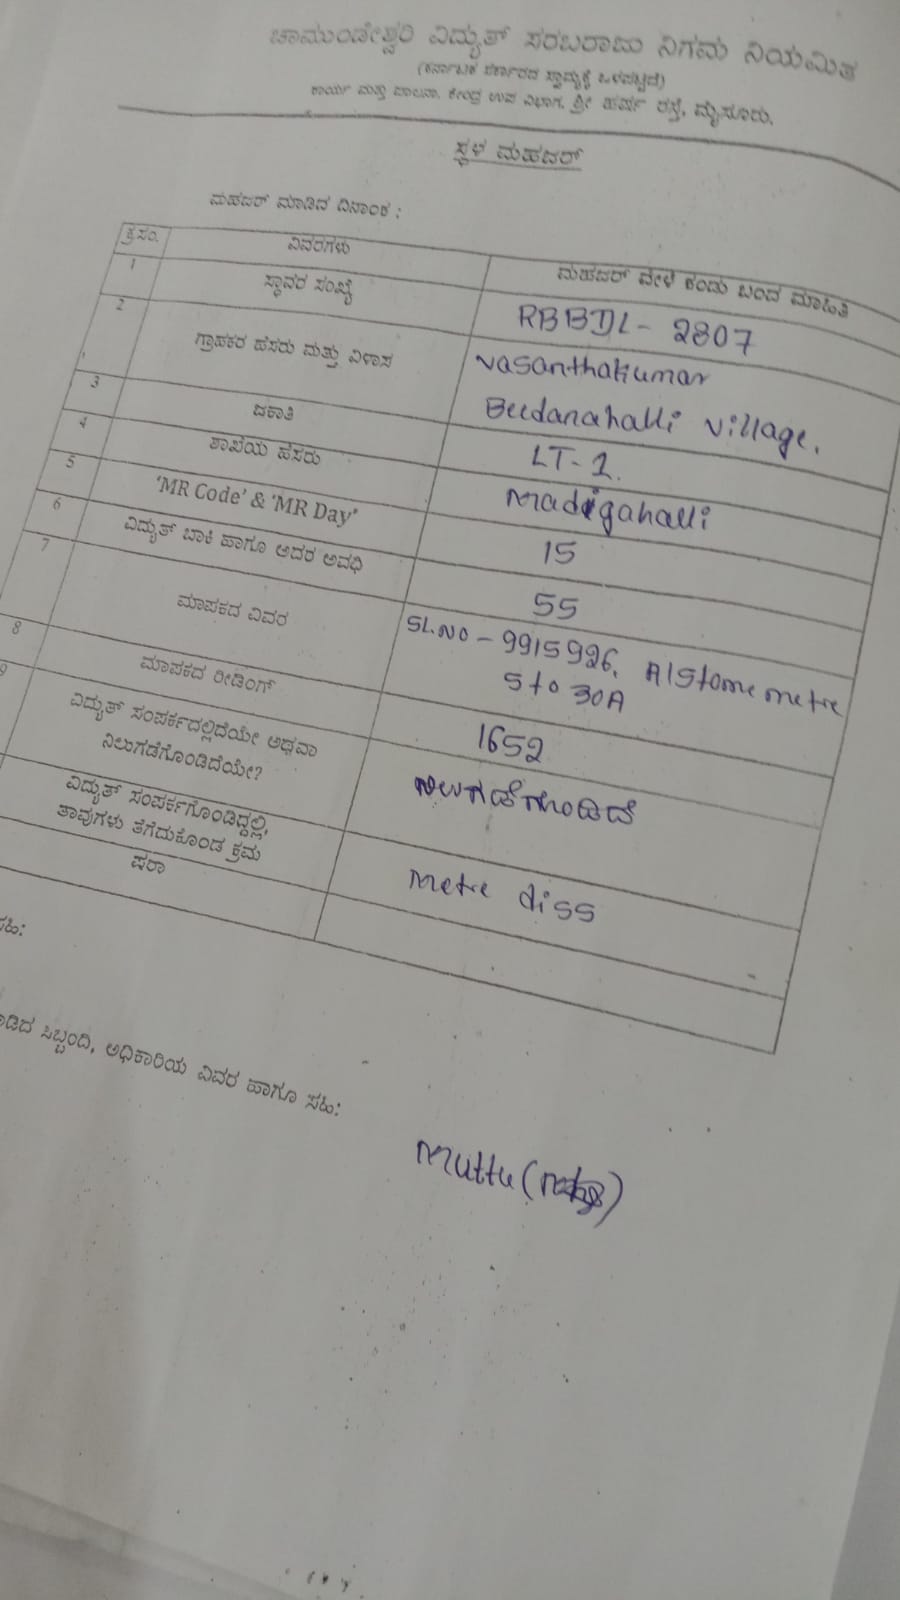 ಚಾಮುಂಡೇಶ್ವರಿ ವಿದ್ಯುತ್ ಸರಬರಾಜು ನಿಗಮ ನಿಯಮಿತ
(ಕರ್ನಾಟಕ ಸರ್ಕಾರದ ಸ್ವಾಮ್ಯಕ್ಕೆ ಒಳಪಟ್ಟಿದೆ)
ಕಾರ್ಯ ಮತ್ತು ಪಾಲನಾ, ಕೇಂದ್ರ ಉಪ ವಿಭಾಗ, ಶ್ರೀ ಹರ್ಷ ರಸ್ತೆ, ಮೈಸೂರು.
ಸ್ಥಳ ಮಹಜರ್
ಮಹಜರ್ ಮಾಡಿದ ದಿನಾಂಕ :
ಕ್ರ.ಸಂ. ವಿವರಗಳು ಮಹಜರ್ ವೇಳೆ ಕಂಡು ಬಂದ ಮಾಹಿತಿ
1 ಸ್ಥಾವರ ಸಂಖ್ಯೆ RBBDL - 2807
2 ಗ್ರಾಹಕರ ಹೆಸರು ಮತ್ತು ವಿಳಾಸ Vasanthakumar
Beedanahalli village.
3 ಜಕಾತಿ LT-1.
4 ಶಾಖೆಯ ಹೆಸರು Madigahalli
5 'MR Code' & 'MR Day' 15
6 ವಿದ್ಯುತ್ ಬಾಕಿ ಹಾಗೂ ಅದರ ಅವಧಿ 55
7 ಮಾಪಕದ ವಿವರ SL.NO - 9915926, Alstome metre
5 to 30A
8 ಮಾಪಕದ ರೀಡಿಂಗ್ 1652
9 ವಿದ್ಯುತ್ ಸಂಪರ್ಕದಲ್ಲಿದೆಯೇ ಅಥವಾ
ನಿಲುಗಡೆಗೊಂಡಿದೆಯೇ? ನಿಲುಗಡೆಗೊಂಡಿದೆ
ವಿದ್ಯುತ್ ಸಂಪರ್ಕಗೊಂಡಿದ್ದಲ್ಲಿ,
ತಾವುಗಳು ತೆಗೆದುಕೊಂಡ ಕ್ರಮ Metre diss
ಷರಾ
ಸಹಿ:
ಸಿಬ್ಬಂದಿ, ಅಧಿಕಾರಿಯ ವಿವರ ಹಾಗೂ ಸಹಿ:
Muttu